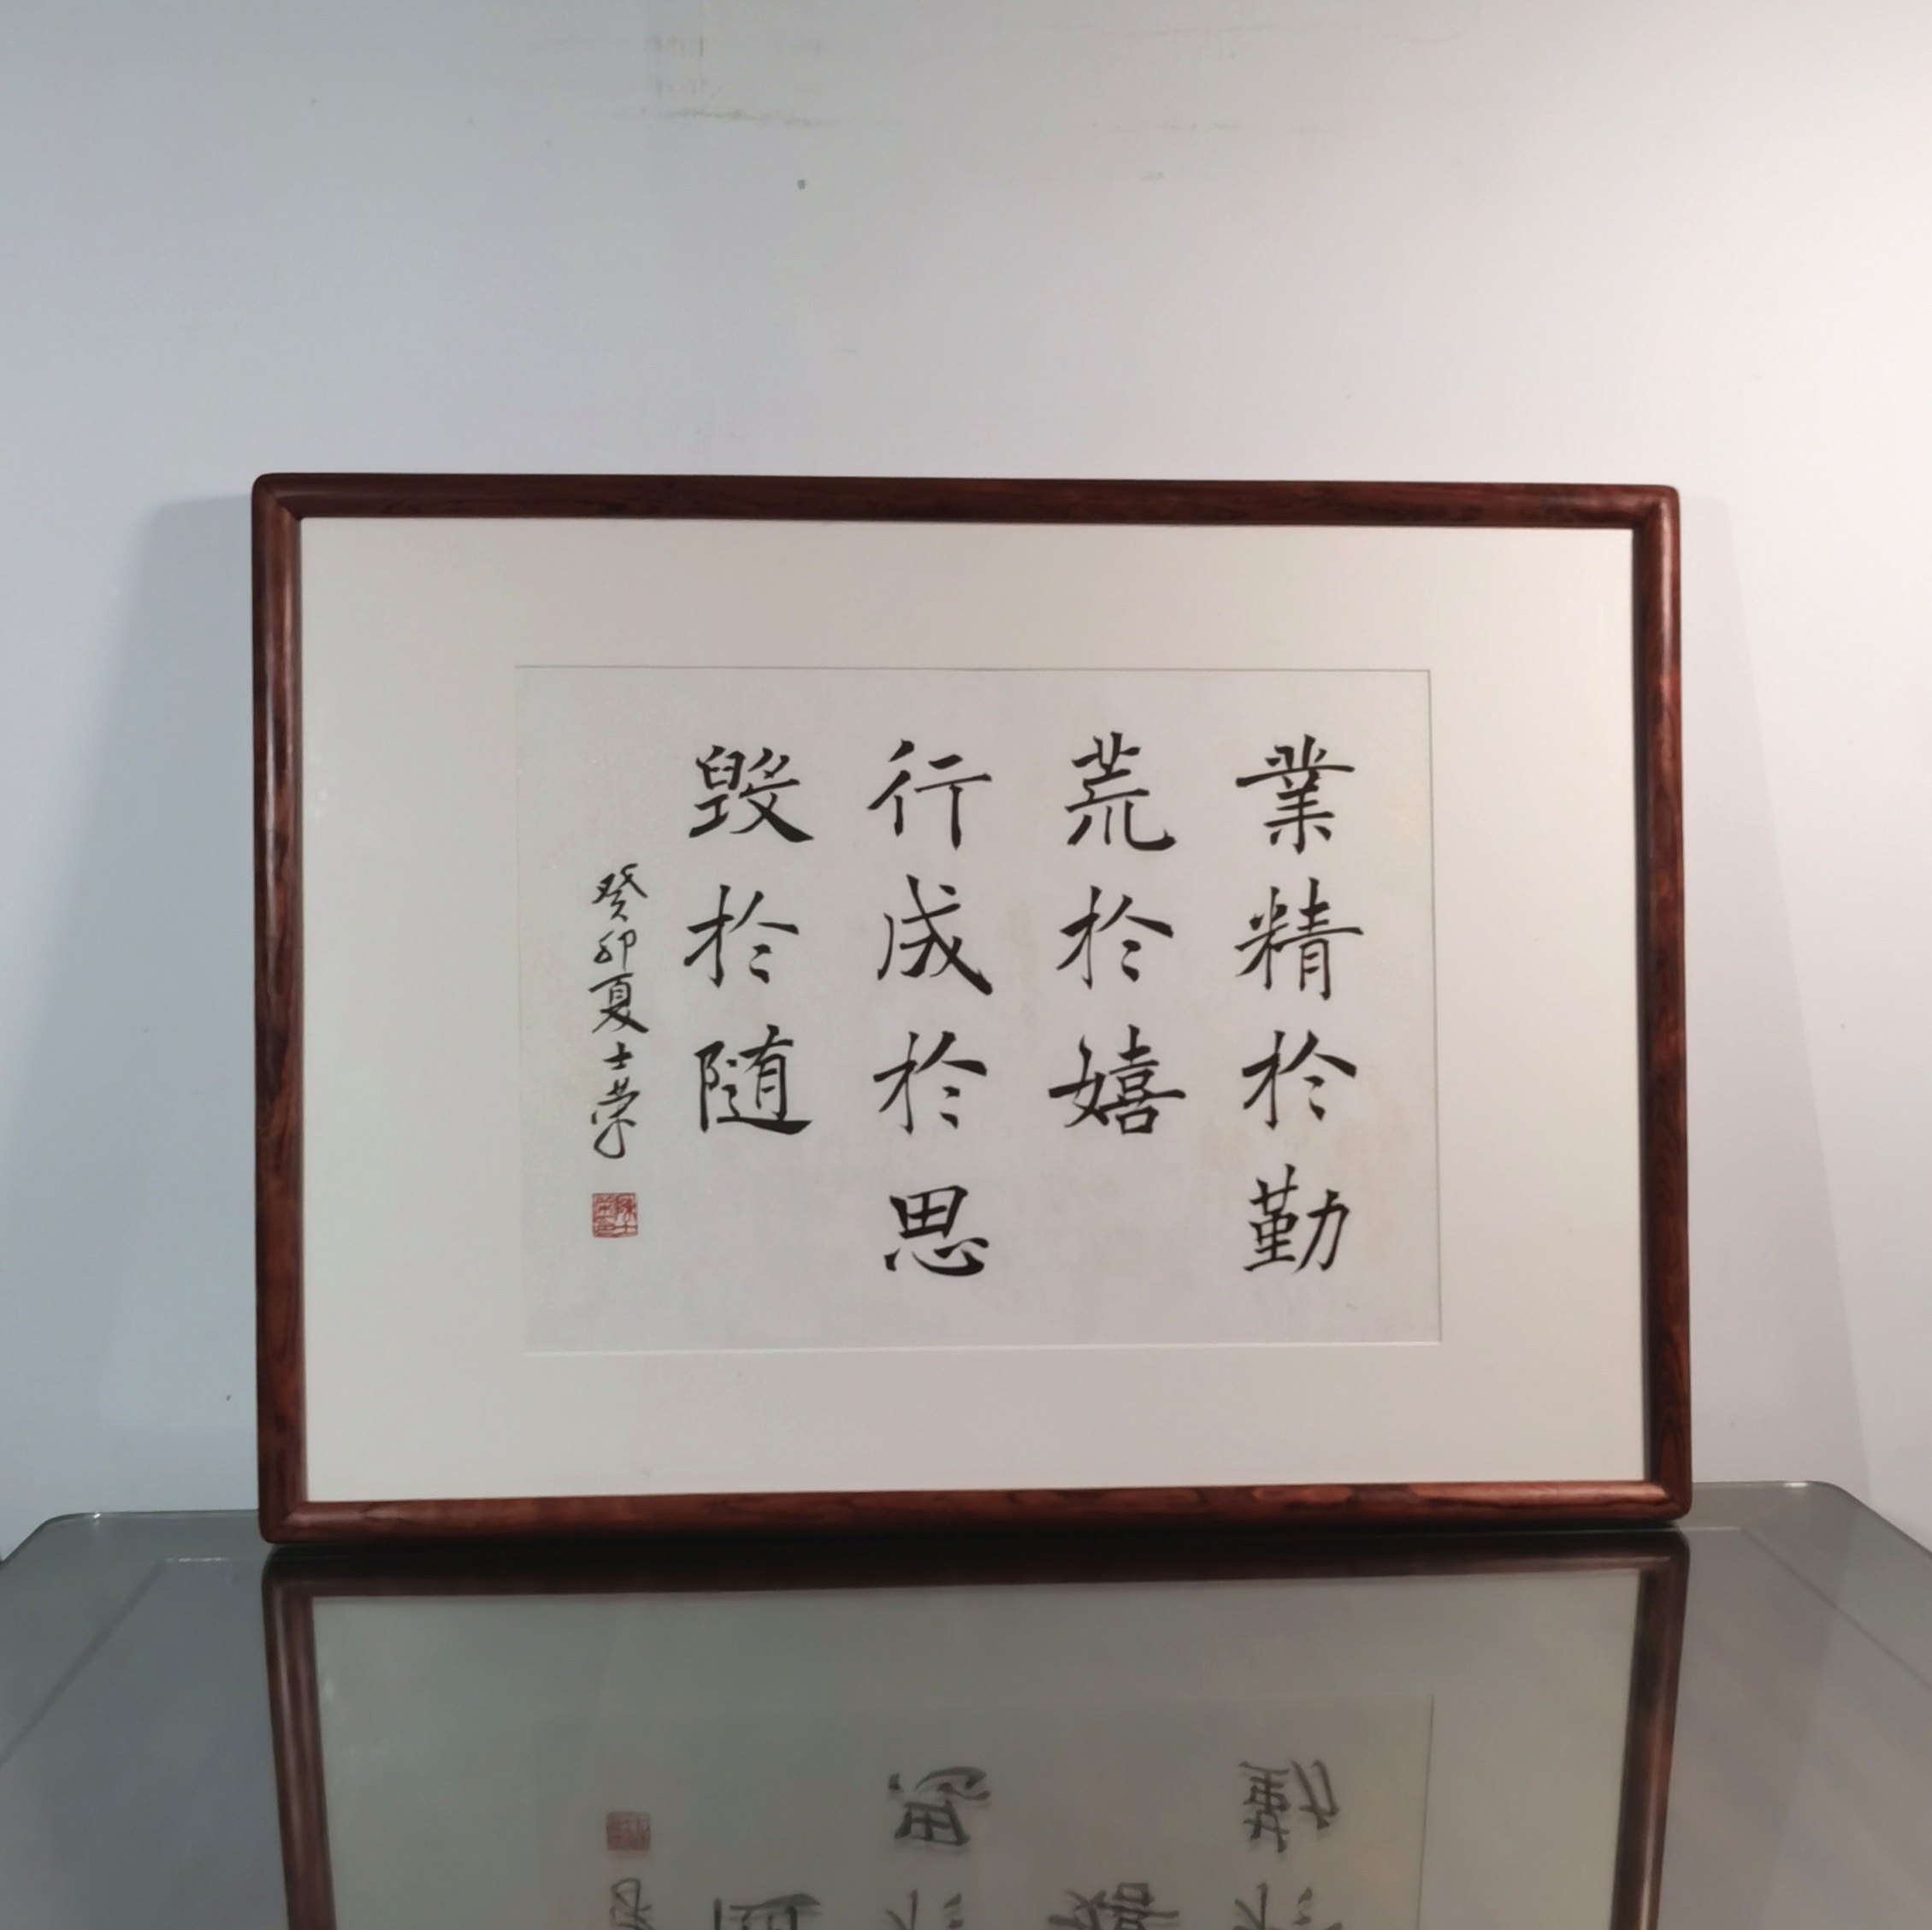 業精於勤
荒於嬉
行成於思
毁於随
癸卯夏士荣